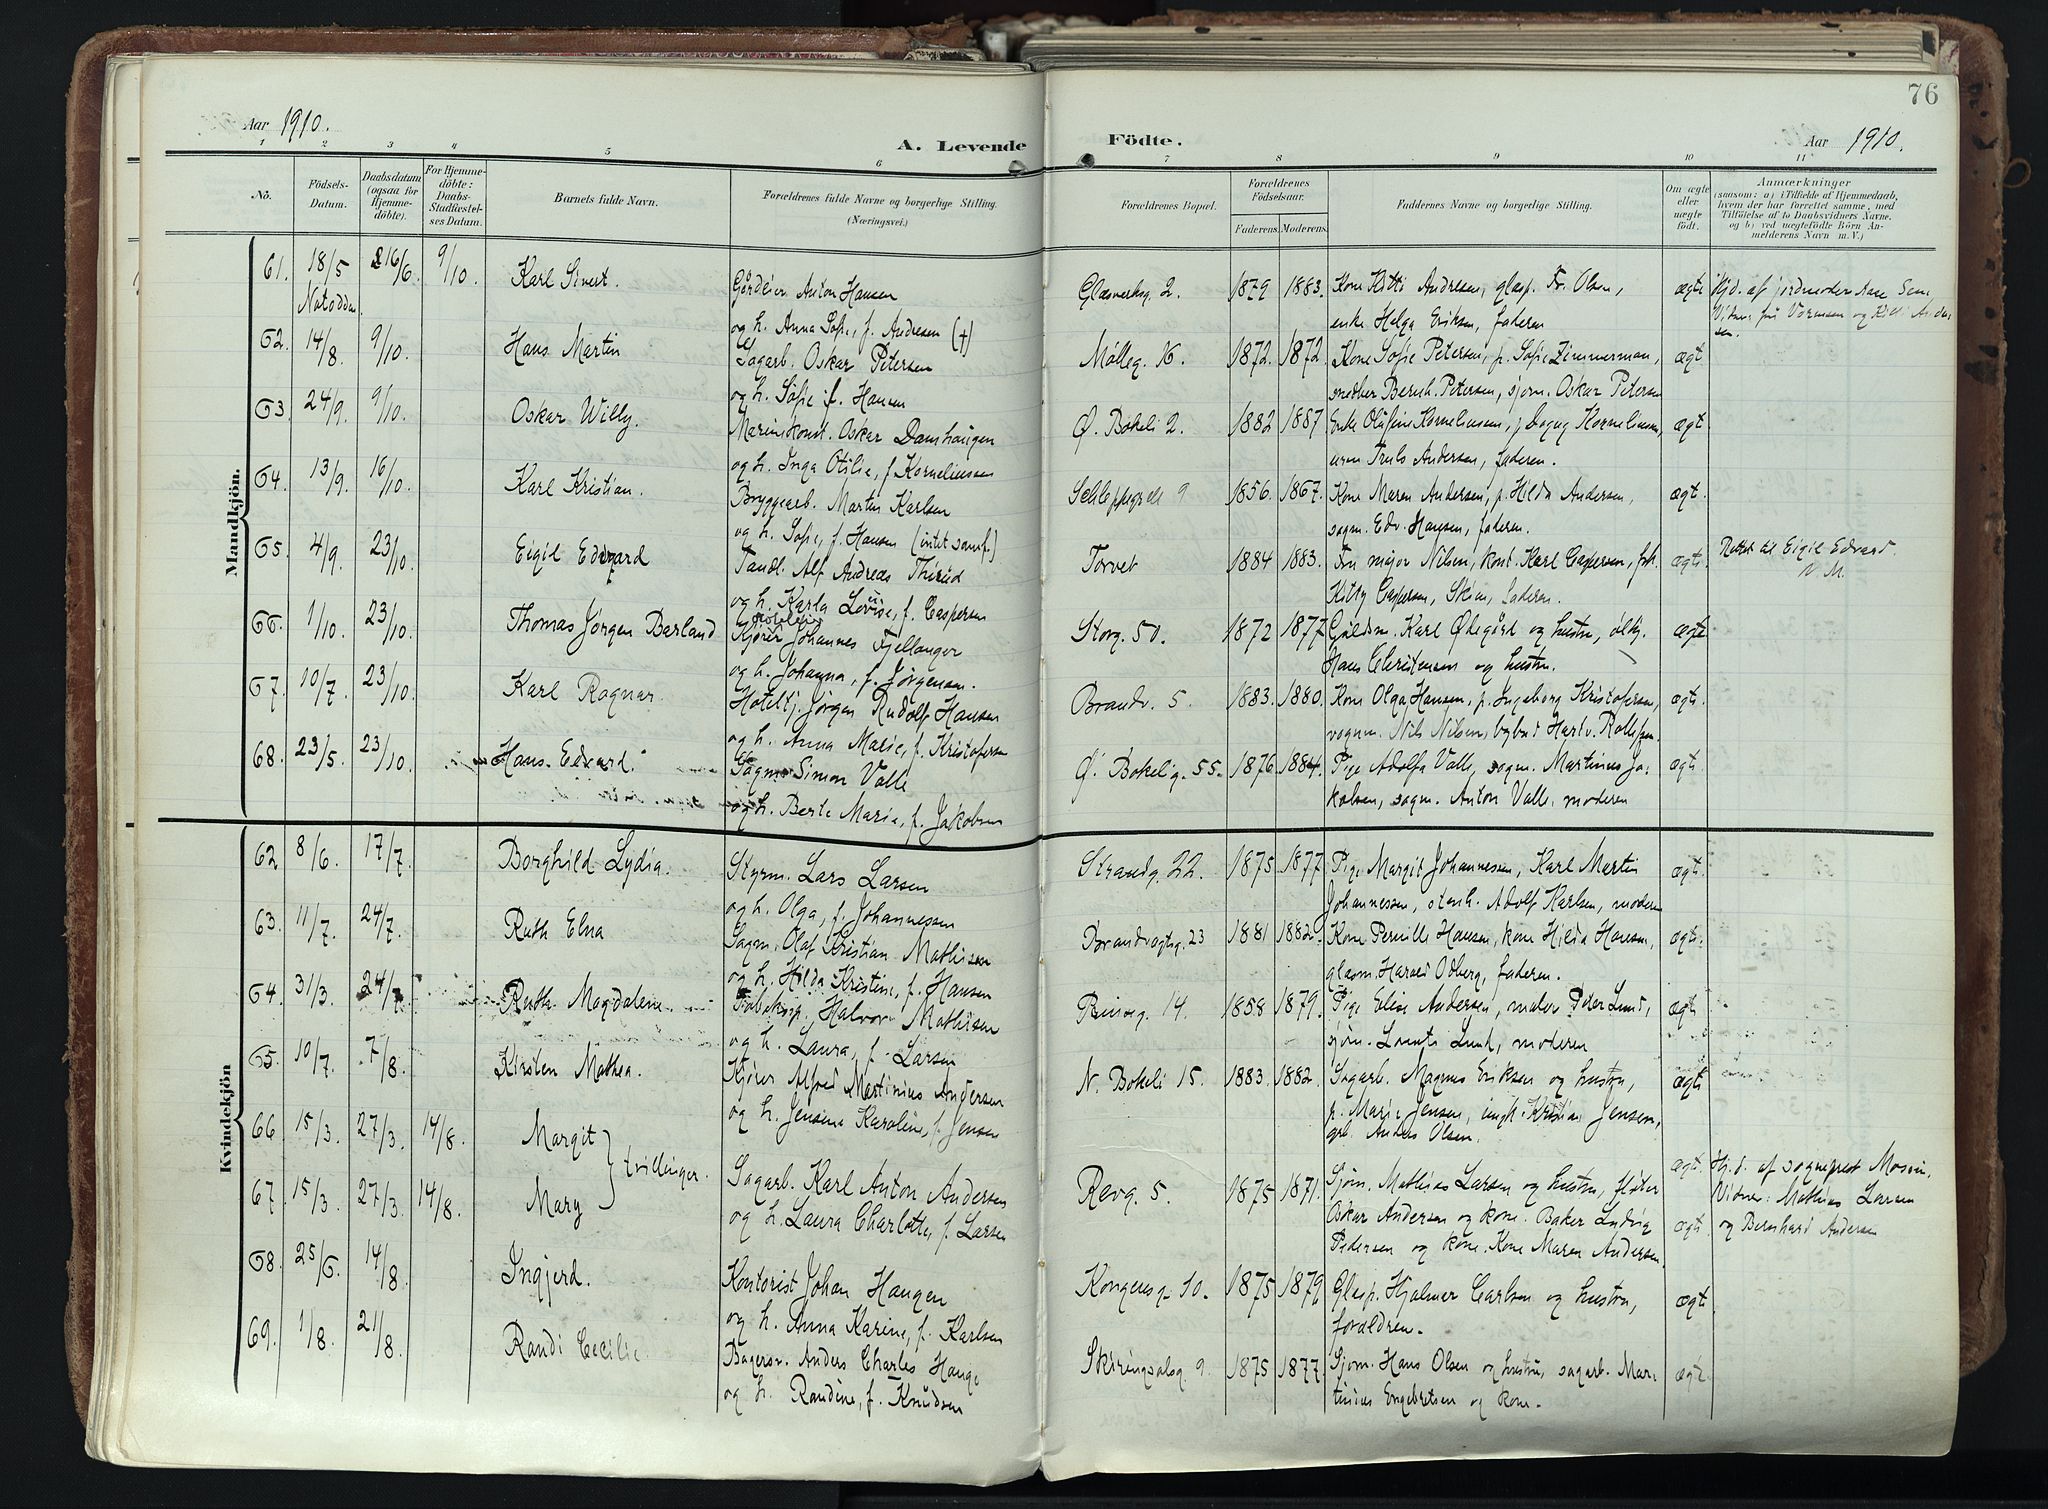 76
Aar 1910.
A. Levende Födte.
Aar 1910.
1 2 3 4 5 6 7 8 9 10 11
No.
Födsels-Datum.
Daabsdatum (ogsaa for Hjemme-döbte).
For Hjemme-döbte: Daabs-Stadfæstel-ses Datum.
Barnets fulde Navn.
Forældrenes fulde Navne og borgerlige Stilling.
(Næringsvei.)
Forældrenes Bopæl.
Forældrenes Födselsaar.
Faderens. Moderens.
Faddernes Navne og borgerlige Stilling.
Om ægte eller uægte födt.
Anmærkninger
(saasom: a) i Tilfælde af Hjemmedaab, hvem der har forrettet samme, med Tilföielse af to Daabsvidners Navne. og b) ved uægtefödte Börn An-melderens Navn m. V.)
Mandkjön.
61. 18/5 16/6. 9/10 Karl Sivert. Gårdeier Anton Hansen Glasverksg. 2. 1879 1883. Kone Kitti Andresen, glasp. Fr. Olsen, ægte Hjd. af jordmoder Aase
Notodden og h. Anna Sofie, f. Andresen (+) enke Helga Eriksen, faderen
62. 14/8. 9/10. Hans Martin Sagarb. Oskar Petersen Mølleg. 16. 1872. 1872. Kone Sofie Petersen, p. Sofie Zimmerman, ægt
og h. Sofie f. Hansen Bernh. Petersen, sjøm. Oskar Petersen
63. 24/9. 9/10. Oskar Willy. Marinekonst. Oskar Damhaugen Ø. Bøkeli 2. 1882 1887 Enke Olufine Korneliussen, p. Dagny Korneliussen, ægt
og h. Inga Otilie, f. Korneliussen urm Truls Andersen, faderen.
64. 13/9. 16/10. Karl Kristian. Bryggearb. Martin Karlsen 9 1856. 1867. Kone Maren Andersen, p. Hilda Andersen, ægt.
og h. Sofie, f. Hansen (intet samf.) sagm. Edv. Hansen, faderen.
65. 4/9. 23/10. Eigil Edvard Tandl. Alf Andreas Thirud Torvet 1884 1883. Fru major Nilsen, kont. Karl Caspersen, frk. ægte. Rettet til Eigil Edvard. N. M.
og h. Karla Lovise, f. Caspersen Kitty Caspersen, Skien, faderen.
66. 1/10. 23/10. Thomas Jørgen Barland Kjører Johannes Fjellanger Storg. 50. 1872 1877 Guldsm. Karl Ødegård og hustru, ægte
og h. Johanna, f. Jørgensen. Hans Christensen og hustru.
67. 10/7. 23/10. Karl Ragnar. Hotellbj. Jørgen Rudolf Hansen Brandv. 5. 1883. 1880. Kone Olga Hansen, p. Ingeborg Kristofersen, ægte.
og h. Anna Marie, f. Kristofersen vognm. Nils Nilsen, bybud Hartv. Rollefsen.
68. 23/5. 23/10. Hans Edvard. Sagm. Simon Valle Ø. Bøkelig. 55. 1876 1884. Pige Adolfa Valle, sagm. Martinius Ja- ægte
og h. Berte Marie, f. Jakobsen kobsen, sagm. Anton Valle, moderen
Kvindekjön
62 8/6. 17/7. Borghild Lydia. Styrm. Lars Larsen Strandg. 22. 1875 1877. Pige Margit Johannessen, Karl Martin ægte.
og h. Olga, f. Johannessen Johannessen, stenh. Adolf Karlsen, moderen
63. 11/7. 24/7. Ruth Elna Sagm. Olaf Kristian Mathisen Brandvagtsg. 23 1881 1882. Kone Pernille Hansen, kone Hilda Hansen, ægte.
og h. Hilda Kristine, f. Hansen glasm. Harald Odberg, faderen.
64. 31/3. 24/7. Ruth Magdalene. Halvor Mathisen 14. 1858 1879. Pige Elise Andersen, maler Peter Lund, ægte
og h. Laura, f. Larsen sjøm. Lorents Lund, moderen
65. 10/7. 7/8. Kirsten Mathea. Kjører Alfred Martinius Andersen N. Bøkeli 15. 1883. 1882. Sagarb. Magnus Eriksen og hustru, ægte
og h. Jensine Karoline, f. Jensen p. Marie Jensen, ungk. Kristian Jensen, arb. Anders Olsen.
66 15/3. 27/3. 14/8. Margit } tvillinger. Sagarb. Karl Anton Andersen Revg. 5. 1875 1871. Sjøm. Mathias Larsen og hustru, fløter ægte. Hj.d. af sogneprest
67. 15/3. 27/3. 14/8. Mary og h. Laura Charlotte, f. Larsen Oskar Andersen og kone. Baker Ludvig ægte. Vidner: Mathias Larsen
Pedersen og kone. Kone Maren Andersen. og Bernhard Andersen
68. 25/6. 14/8. Ingjerd. Kontorist Johan Haugen Kongensg. 10. 1875 1879. Glasp. Hjalmer Carlsen og hustru, ægte.
og h. Anna Karine, f. Karlsen forældren.
69. 1/8. 21/8. Randi Cecilie. Bagersv. Anders Charles Hauge Skiringsalsg. 9. 1875 1877. Sjøm. Hans Olsen og hustru, sagarb. Mar- ægte.
og h. Randine, f. Knudsen tinius Engebretsen og kone.